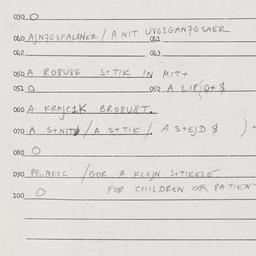 030 O
040 AJN7G3FALENER / A NIT UVG1GAN7GSNER
041
062 063
050 A ROBUBE S+TIK IN MIT+
051 O 052 A LIP(Q+$
060 A KRAJC1K BROBUBT.
070 A S+NIT$ / A S+TIK /. A S+EJD $ ) +
080 O
090 PE,NECL /GOR A KLEJN S+TIKELE
100 O FOR CHILDREN OR PATIENT